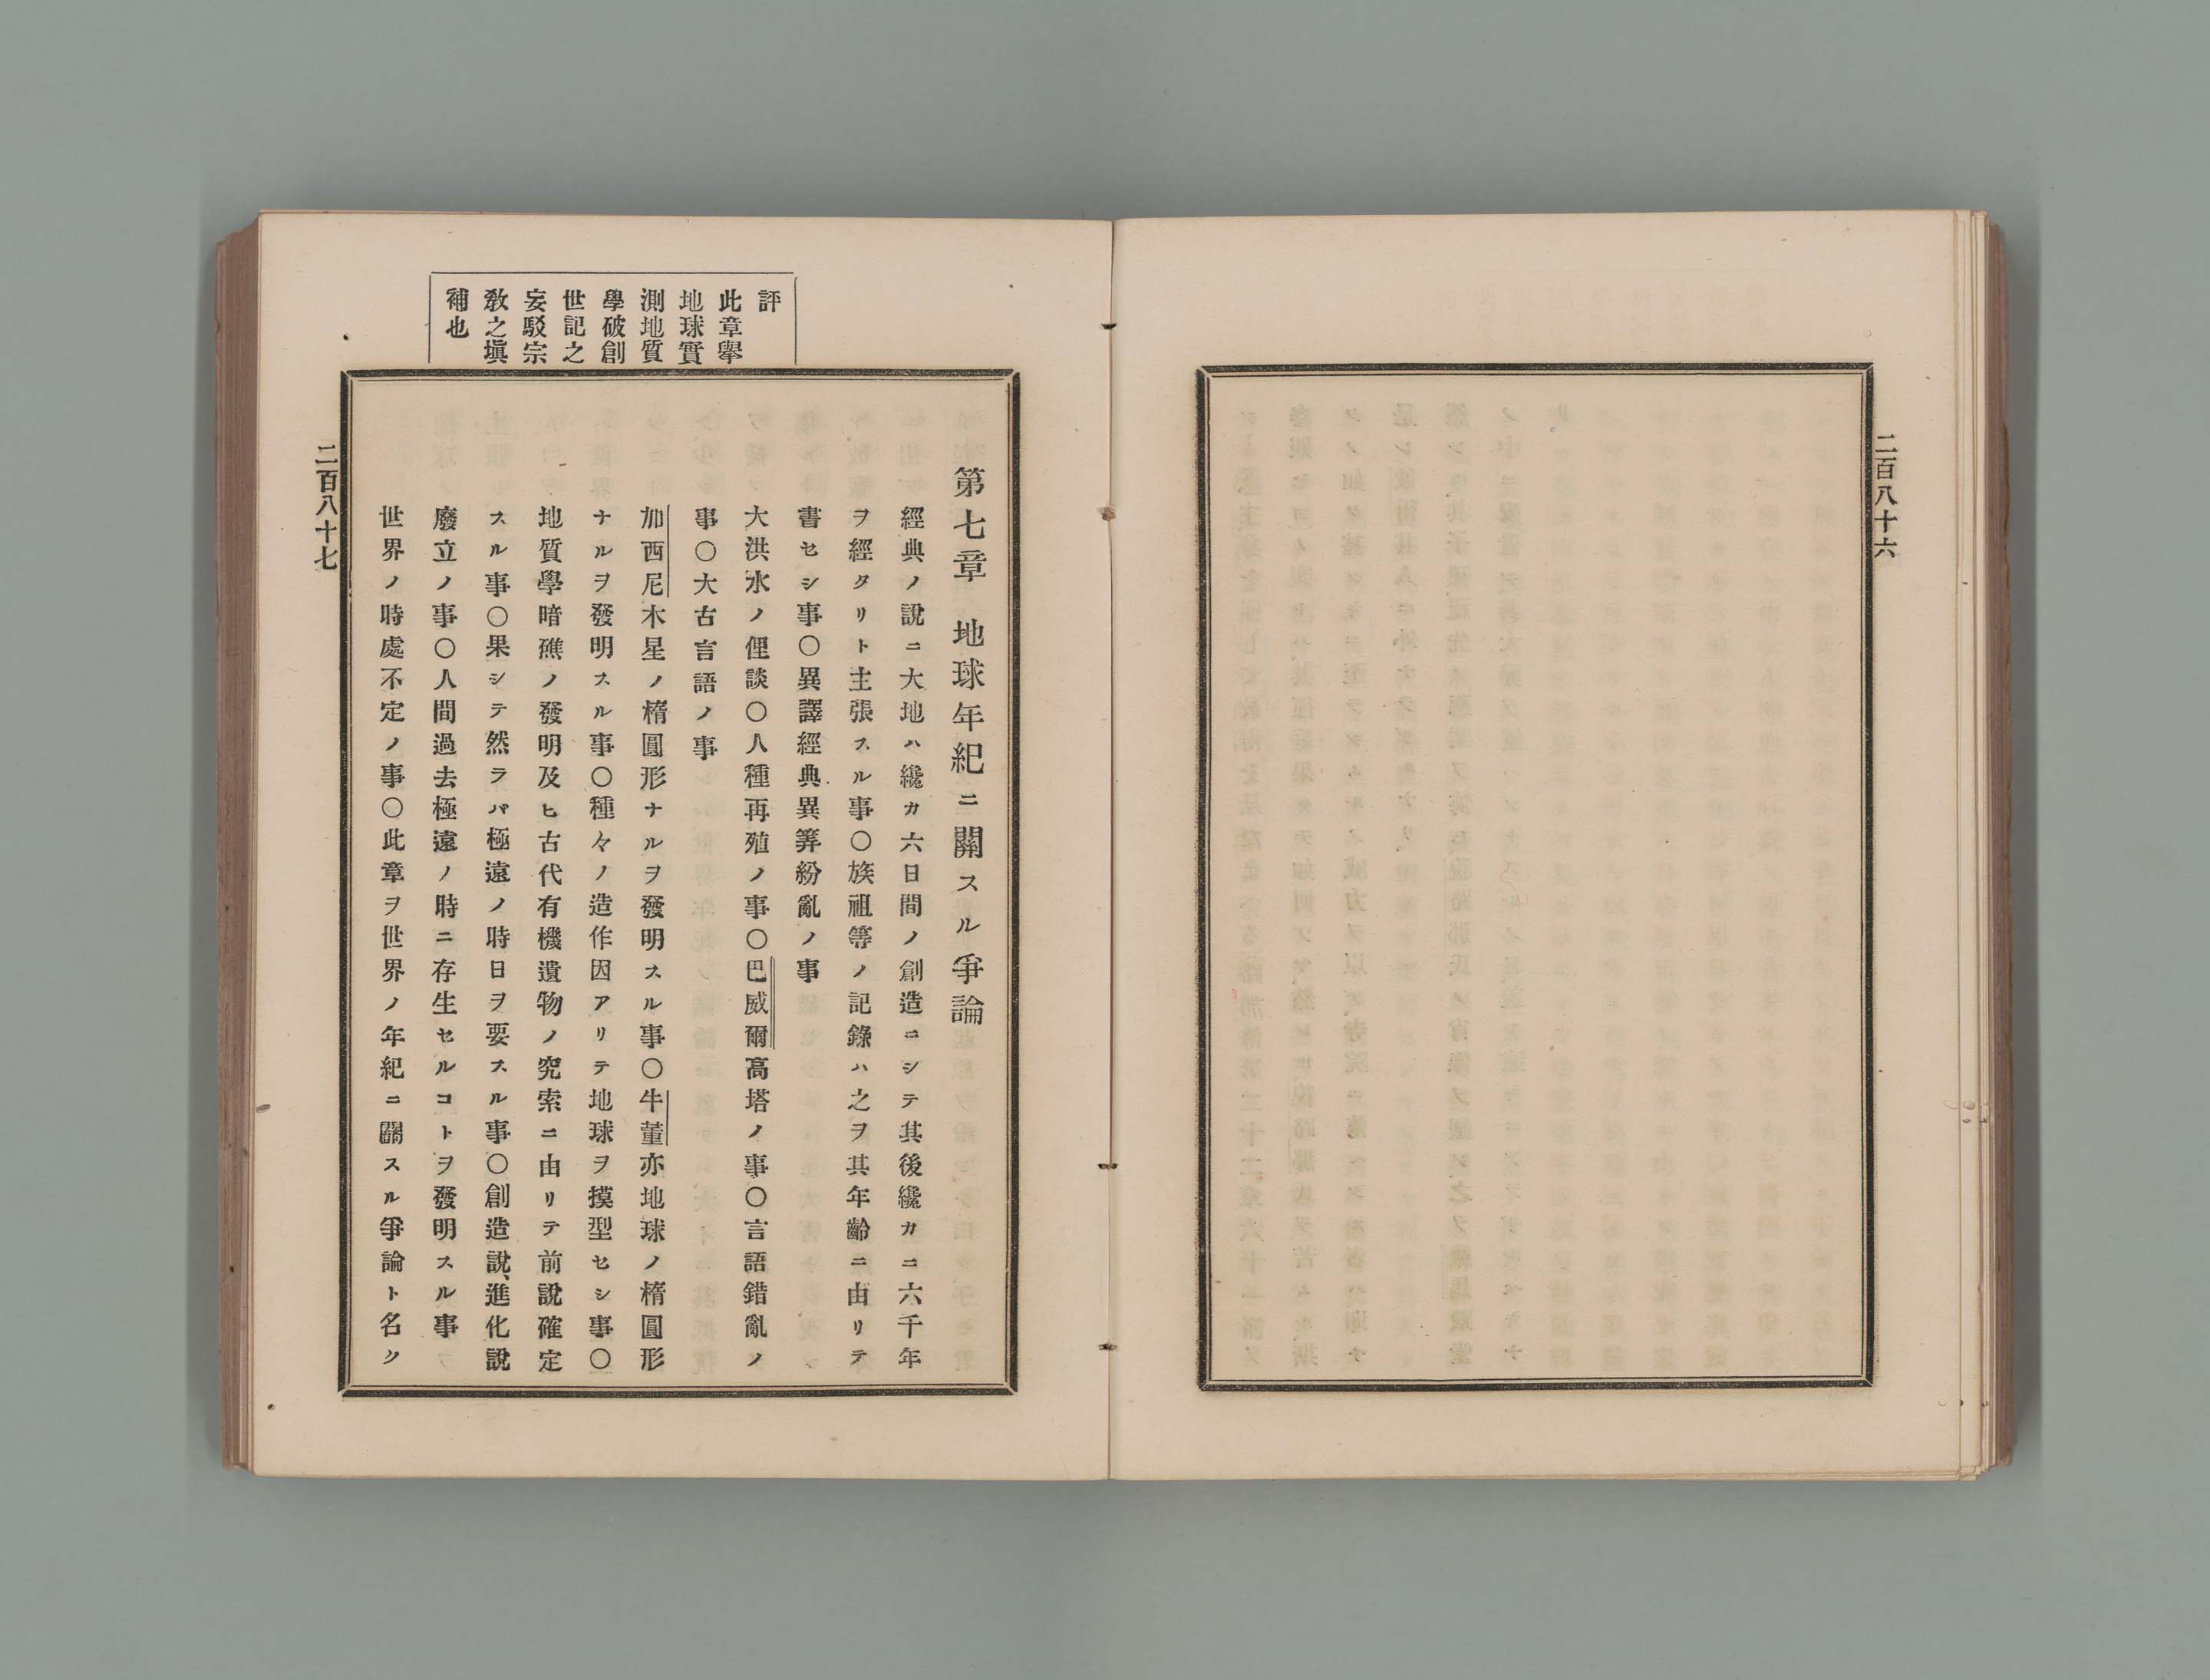 二百八十六
評
此章擧
地球實
測地質
學破創
世記之
妄駁宗
敎之塡
補也
第七章 地球年紀ニ關スル爭論
經典ノ說ニ大地ハ纔カ六日間ノ創造ニシテ其後纔カニ六千年
ヲ經タリト主張スル事〇族祖等ノ記錄ハ之ヲ其年齡ニ由リテ
書セシ事〇異譯經典異筭紛亂ノ事
大洪水ノ俚談〇人種再殖ノ事〇巴威爾高塔ノ事〇言語錯亂ノ
事〇大古言語ノ事
加西尼木星ノ楕圓形ナルヲ發明スル事〇牛董亦地球ノ楕圓形
ナルヲ發明スル事〇種々ノ造作因アリテ地球ヲ摸型セシ事〇
地質學暗礁ノ發明及ヒ古代有機遺物ノ究索ニ由リテ前說確定
スル事〇果シテ然ラバ極遠ノ時日ヲ要スル事〇創造說、進化說
廢立ノ事〇人間過去極遠ノ時ニ存生セルコトヲ發明スル事
世界ノ時處不定ノ事〇此章ヲ世界ノ年紀ニ關スル爭論ト名ク
二百八十七